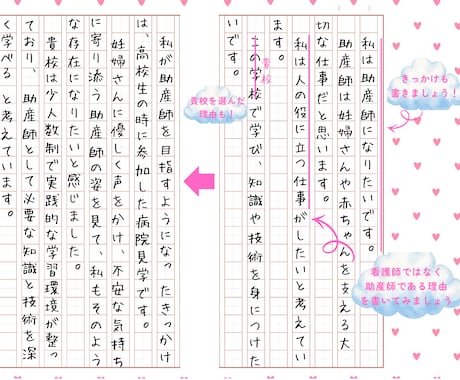 私は助産師になりたいです。
助産師は妊婦さんや赤ちゃんを支える大
切な仕事だと思います。
私は人の役に立つ仕事がしたいと考えてい
ます。
この学校で学び、知識や技術を身につけた
いです。
貴校
きっかけも
書きましょう!
看護師ではなく
助産師である理由
を書いてみましょう
貴校を選んだ
理由も!
私が助産師を目指すようになったきっかけ
は、高校生の時に参加した病院見学です。
妊婦さんに優しく声をかけ、不安な気持ち
に寄り添う助産師の姿を見て、私もそのよう
な存在になりたいと感じました。
貴校は少人数制で実践的な学習環境が整っ
ており、助産師として必要な知識と技術を深
く学べると考えています。